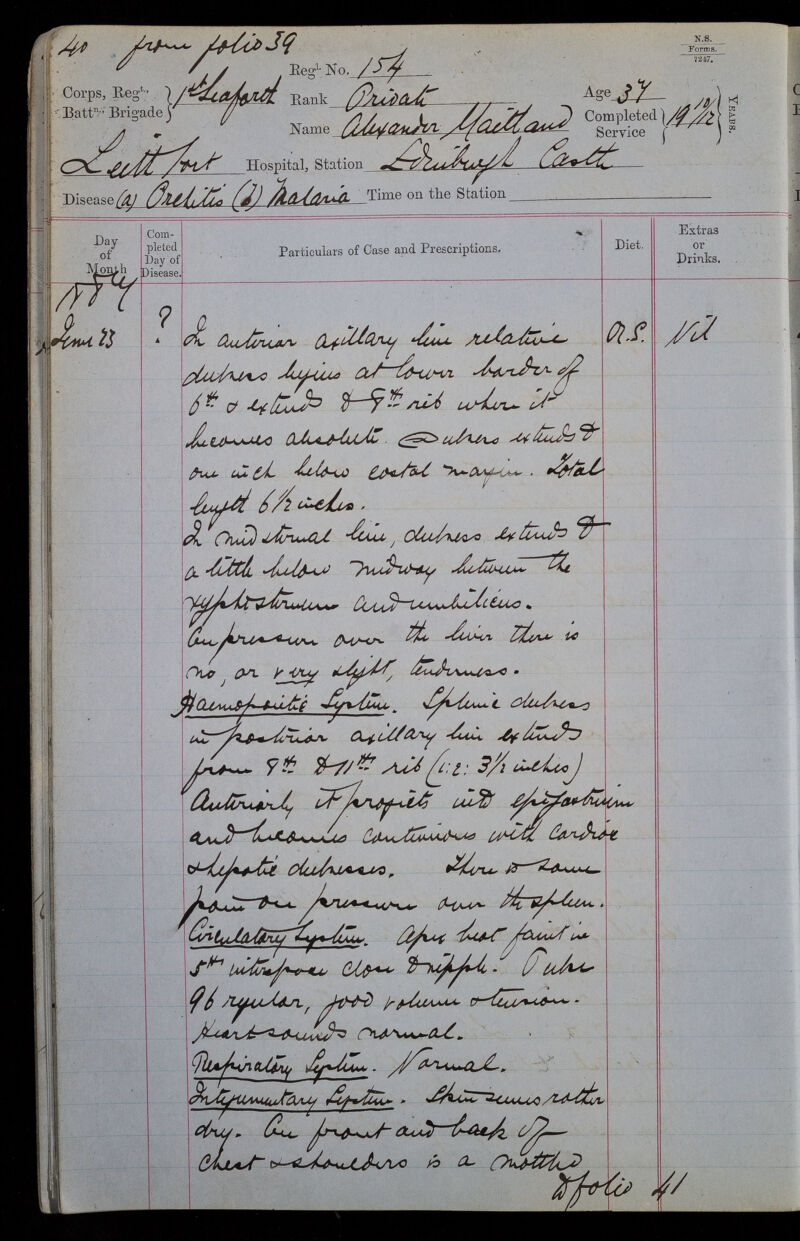 40 from folio 39
N.S.
Forms.
7247.
Regl. No. 154
Corps, Regt.
Battn. Brigade } 1st Seaforth
Rank Private
Age 37
Name Alexander Maitland
Completed Service { 19 10/12 } YEARS.
Leith Fort Hospital, Station Edinburgh Castle
Disease (a) Orchitis (b) Malaria Time on the Station
Day of Month
Completed Day of Disease.
Particulars of Case and Prescriptions.
Diet.
Extras or Drinks.
June 23 ? In anterior axillary line relative O.S. Nil
dulness begins at lower border of
6th & extends to 8th rib where it
becomes absolute. Dulness extends to
one inch below costal margin. Total
length 6 1/2 inches.
In mid sternal line, dulness extends to
a little below midway between the
xyphisternum and umbilicus.
On pressure over the liver there is
no, or very slight, tenderness.
Haemopoietic System. Splenic dulness
in posterior axillary line extends
from 8th to 11th rib (i.e: 3 1/2 inches)
Anteriorly it projects into epigastrium
and becomes continuous with cardiac
& hepatic dulnesses. There is some
pain on pressure over the spleen.
Circulatory System. Apex beat faint in
5th interspace close to nipple. Pulse
96 regular, good volume & tension.
Heart sounds normal.
Respiratory System. Normal.
Integumentary System. Skin seems rather
dry. On front and back of
chest & shoulders is a mottled
to folio 41